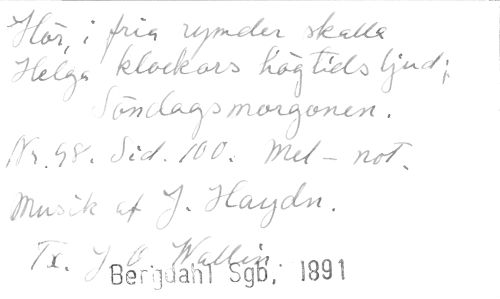 Hör, i fria rymder skalla
Helga klockors högtidsljud;
Söndagsmorgonen.
Nr. 98. Sid. 100. Mel-not.
Musik af J. Haydn.
Tx. J O Wallin
Bergdahl Sgb, 1891